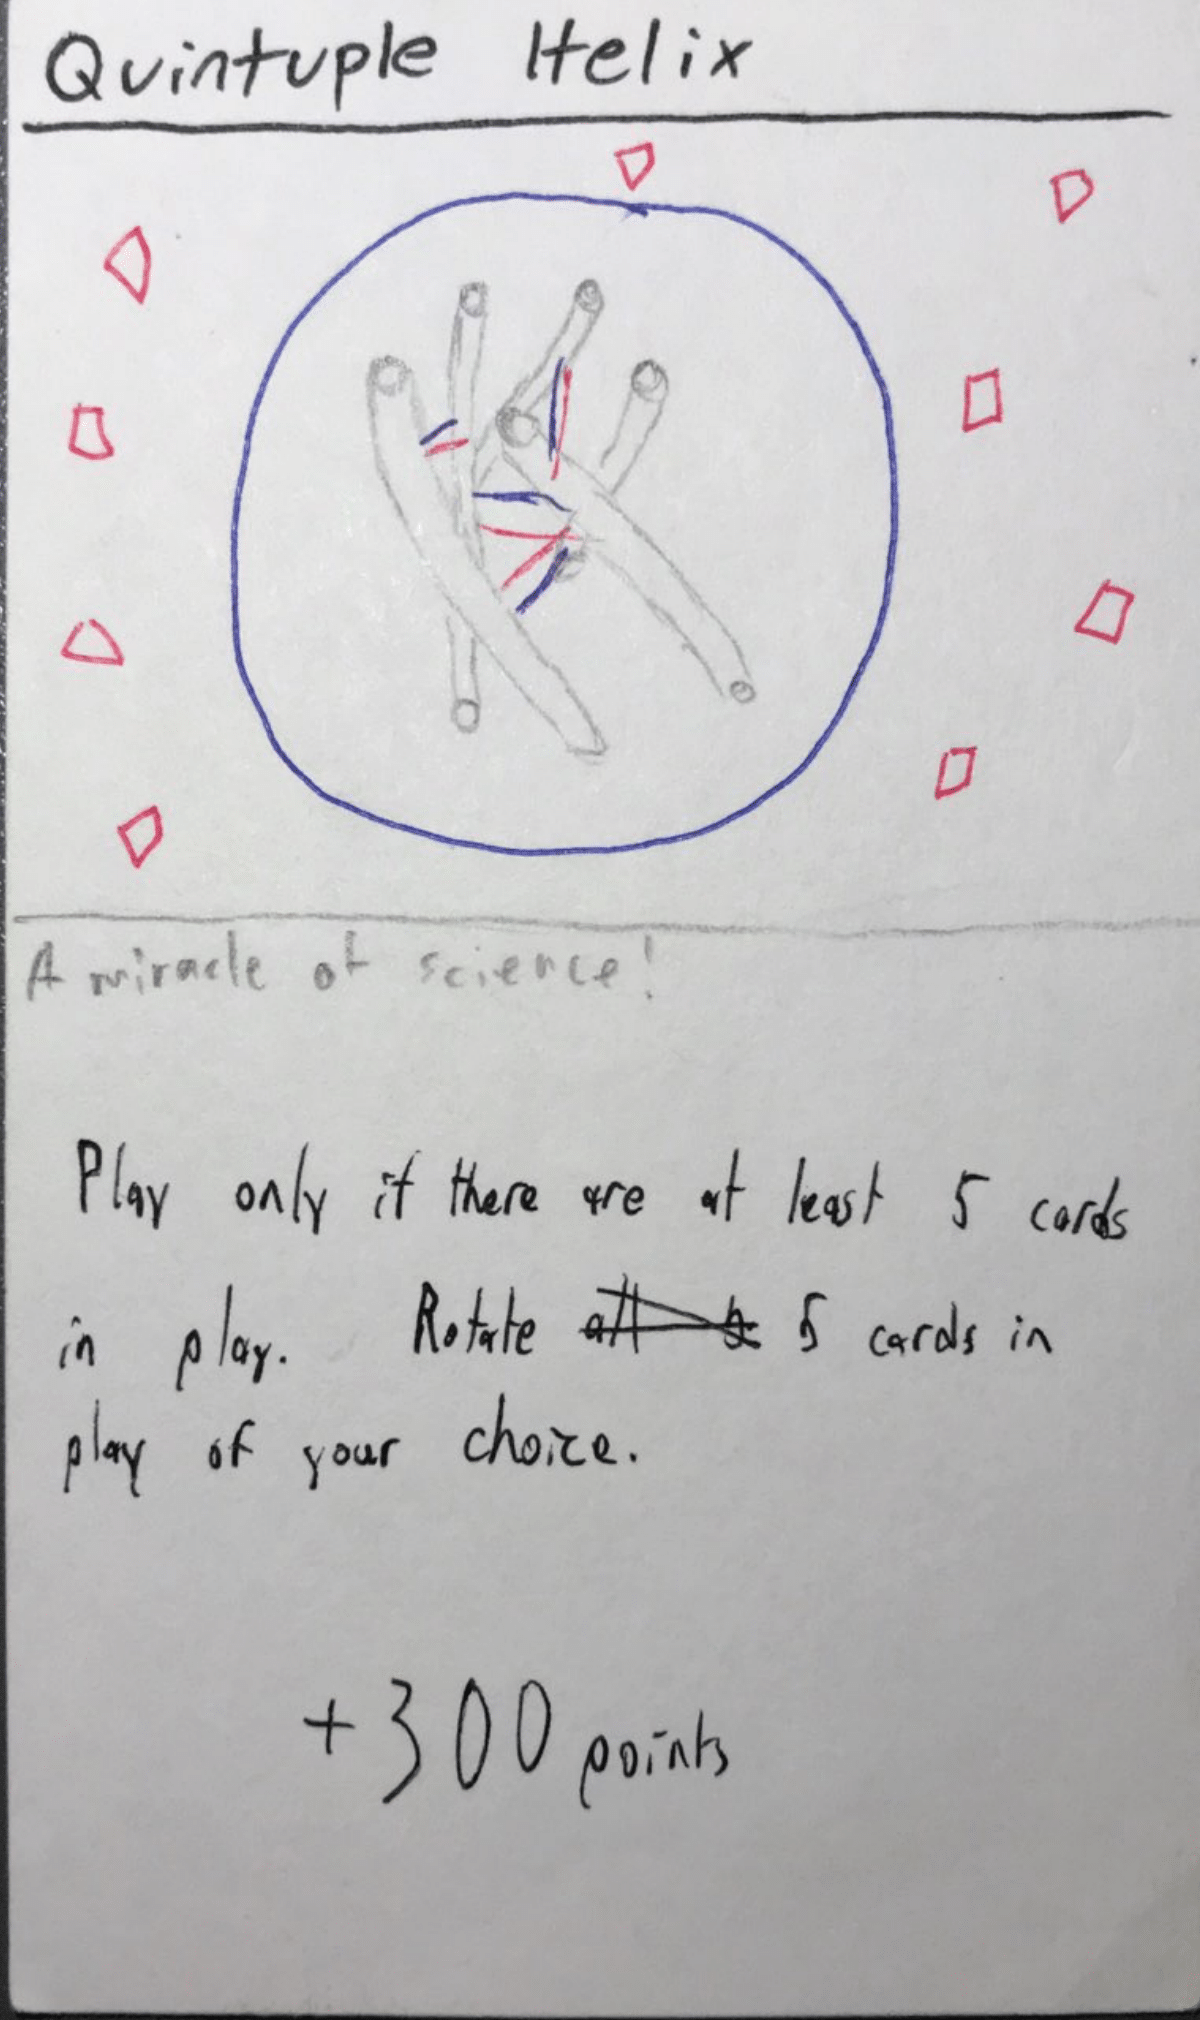 Quintuple Helix
A miracle of science!
Play only if there are at least 5 cards
in play. Rotate 5 cards in
play of your choice.
+300 points